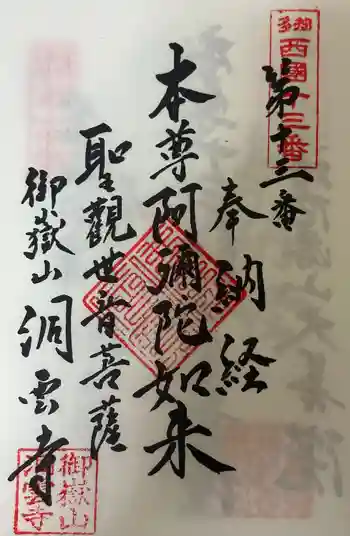 西國十三番
第十三番
奉納経
本尊阿彌陀如来
聖觀世音菩薩
御嶽山洞雲寺
御嶽山
洞雲寺